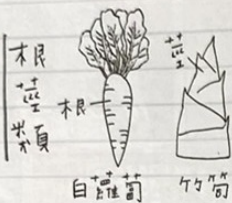 根莖類
根
白蘿蔔
莖
竹筍